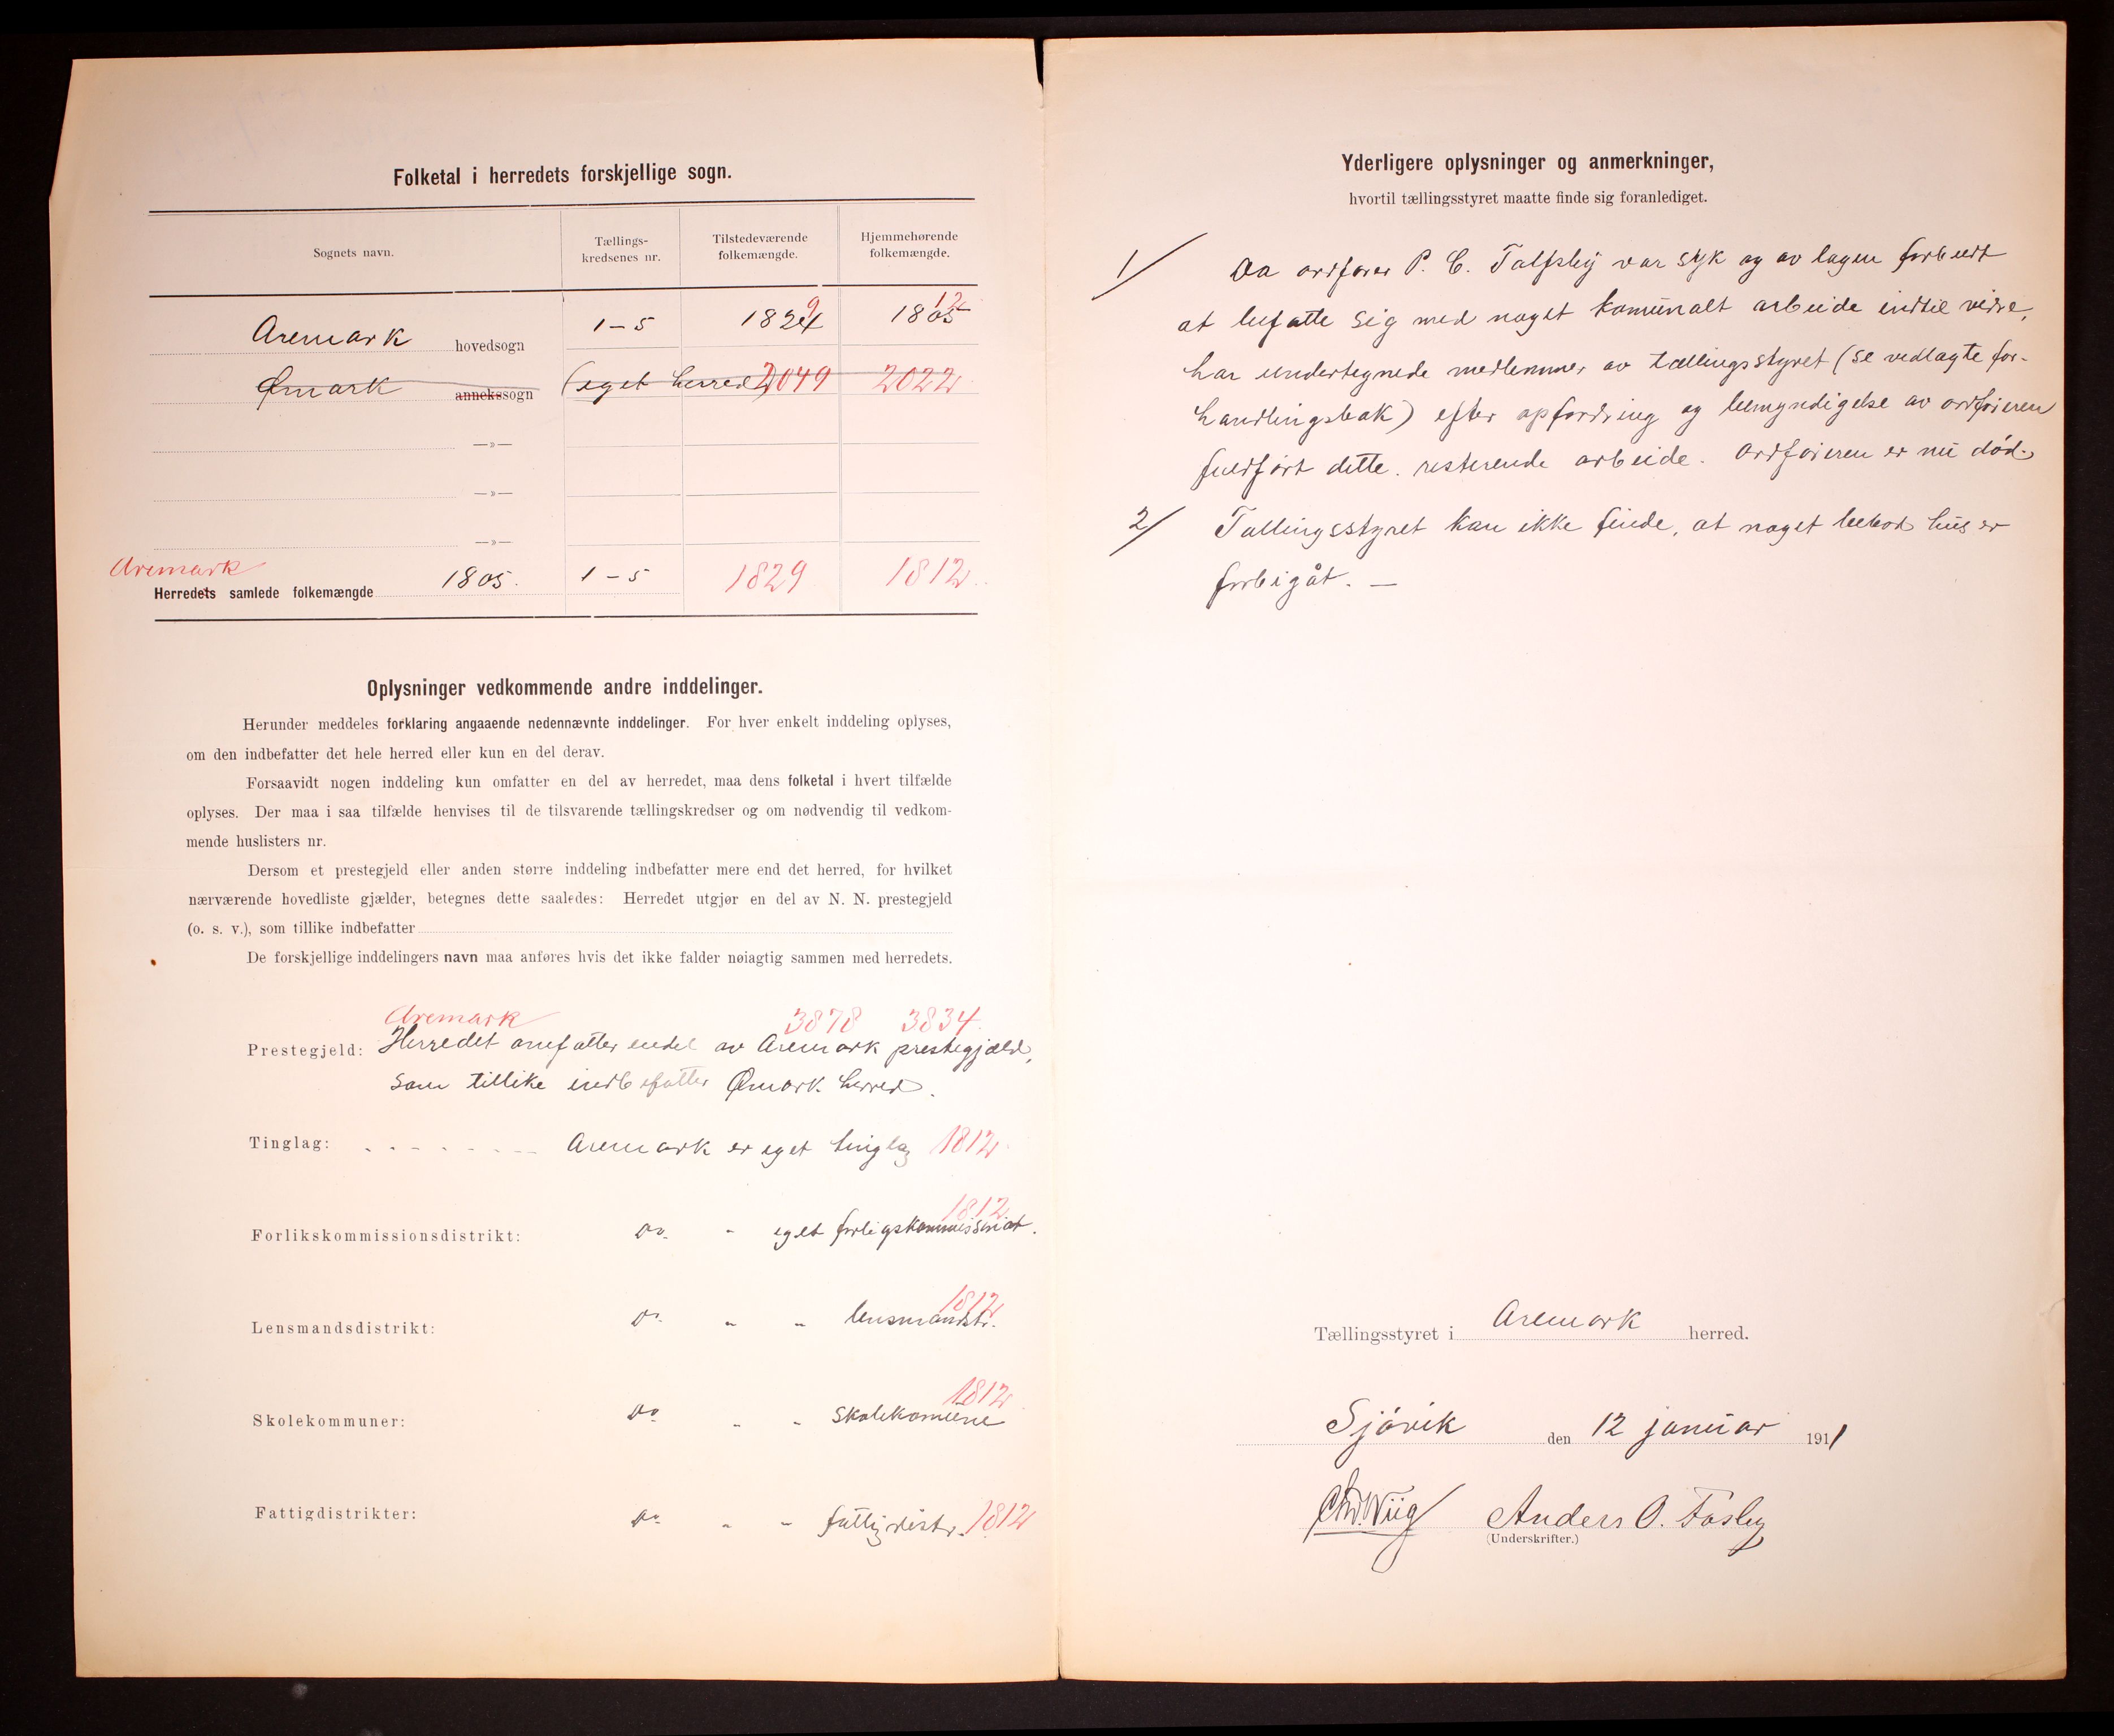 Folketal i herredets forskjellige sogn.
Sognets navn.
Tællings-
kredsenes nr.
Tilstedeværende
folkemængde.
Hjemmehørende
folkemængde.
Aremark hovedsogn 1-5 1824 9 1805 12
Ømark annekssogn (eget herred) 2049 2022
—»—
—»—
—»—
Aremark
Herredets samlede folkemængde 1805. 1-5 1829 1812
Oplysninger vedkommende andre inddelinger.
Herunder meddeles forklaring angaaende nedennævnte inddelinger. For hver enkelt inddeling oplyses,
om den indbefatter det hele herred eller kun en del derav.
Forsaavidt nogen inddeling kun omfatter en del av herredet, maa dens folketal i hvert tilfælde
oplyses. Der maa i saa tilfælde henvises til de tilsvarende tællingskredser og om nødvendig til vedkom-
mende huslisters nr.
Dersom et prestegjeld eller anden større inddeling indbefatter mere end det herred, for hvilket
nærværende hovedliste gjælder, betegnes dette saaledes: Herredet utgjør en del av N. N. prestegjeld
(o. s. v.), som tillike indbefatter
De forskjellige inddelingers navn maa anføres hvis det ikke falder nøiagtig sammen med herredets.
Aremark 3878 3834
Prestegjeld: Herredet omfatter endel av Aremark prestegjæld,
som tillike indbefatter Ømark herred.
Tinglag: Aremark er eget tinglag 1812
1812
Forlikskommissionsdistrikt: Do. " eget forligskommissariat.
1812
Lensmandsdistrikt: Do. " " lensmandstr.
1812
Skolekommuner: Do " " skolekomune
Fattigdistrikter: Do " " fattigdistr. 1812
Yderligere oplysninger og anmerkninger,
hvortil tællingsstyret maatte finde sig foranlediget.
1/ Da ordfører P. C. var syk og av lægen forbudt
at befatte sig med noget komunalt arbeide indtil videre,
har undertegnede medlemmer av tællingsstyret (se vedlagte for-
handlingsbok) efter opfordring og bemyndigelse av ordføreren
fuldført dette resterende arbeide. Ordføreren er nu død.
2/ Tællingsstyret kan ikke finde, at noget bebod hus er
forbigåt. —
Tællingsstyret i Aremark herred.
Sjøvik den 12 januar 1911
Chr. Wiig Anders O. Fosby
(Underskrifter.)